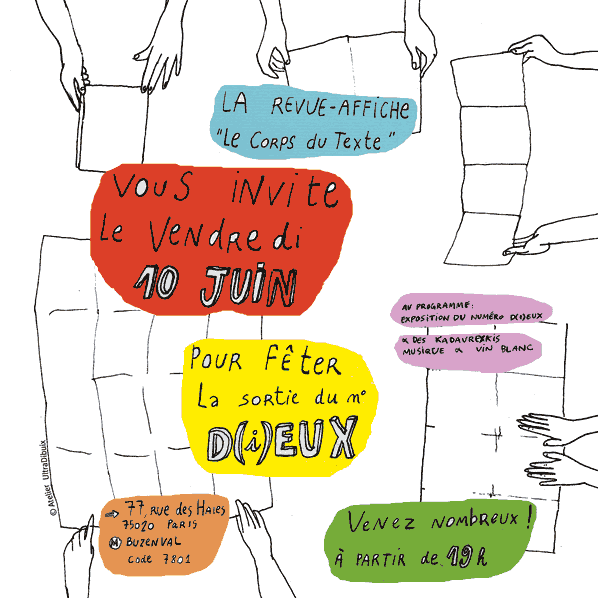 LA REVUE-AFFICHE
"Le CORPS DU TEXTE"
VOUS iNViTe
Le VeNDReDi
10 JUiN
POUR FÊTER
La sortie du n°
D(i)EUX
AU PROGRAMME:
EXPOSITION DU NUMÉRO D(I)EUX
& DES KADAVREXKIS
MUSIQUE & VIN BLANC
→ 77, RUE des HAIES
75020 PARIS
Ⓜ BUZENVAL
CODE 7801
VENEZ NOMBREUX!
À PARTIR de 19h
© Atelier UltraDibuix